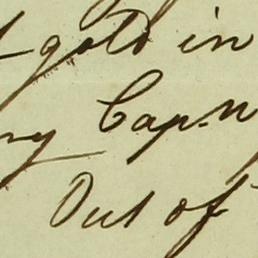 gold in
Capn
Out of